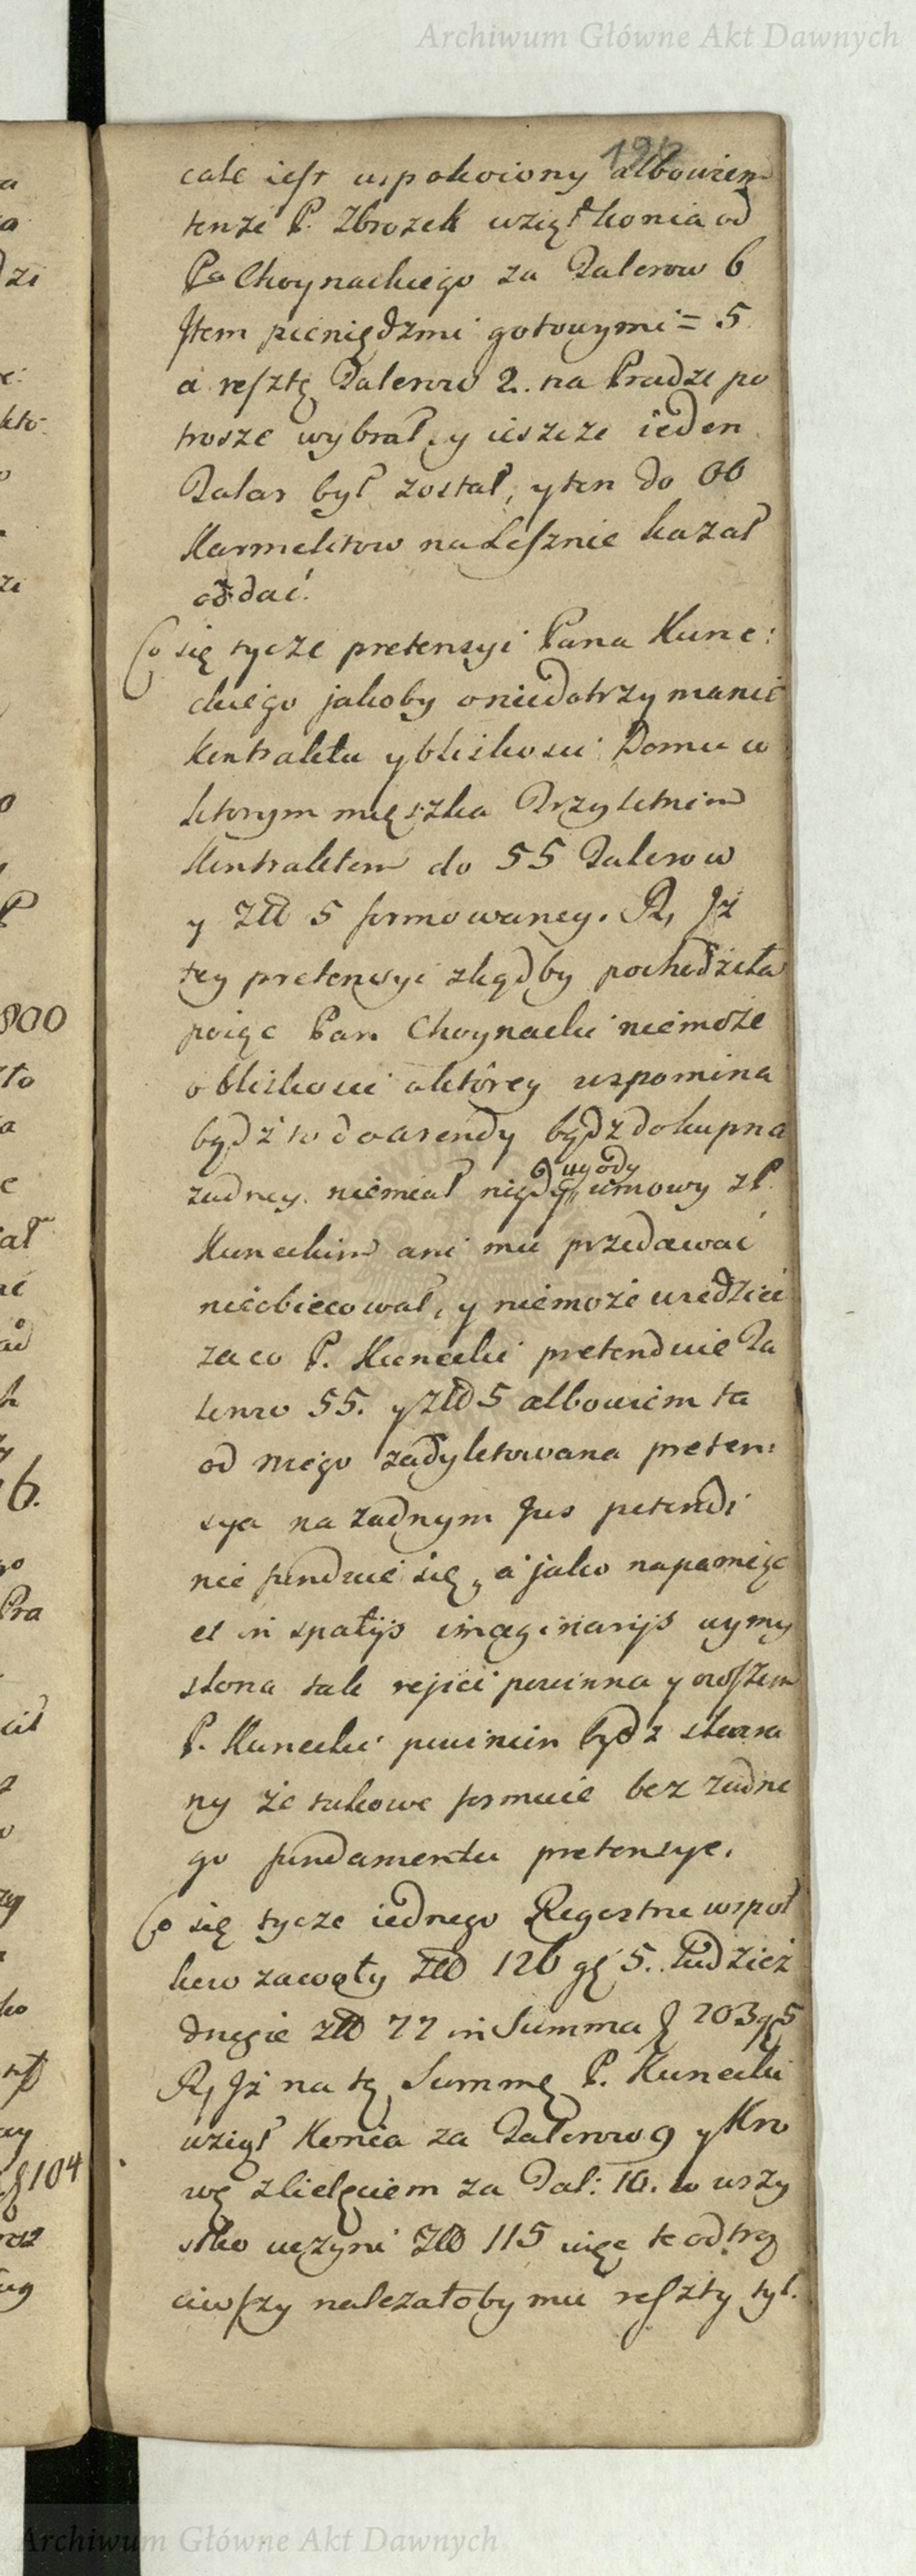 Archiwum Główne Akt Dawnych
cale iest uspokoiony albowiem
tenże P. Zbrozek wziął konia od
Pa Choynackiego za Talerow 6
Jtem pieniędzmi gotowymi = 5
a resztę Talerow 2. na Pradze po
trosze wybrał, y ieszcze ieden
Talar był został, y ten do OO
Karmelitow na Lesznie kazał
oddać.
Co się tycze pretensyi Pana Kune:
ckiego jakoby o niedotrzymanie
kontraktu y bliskosci Domu w
ktorym mięszka Trzyletnim
Kontraktem do 55 Talerow
y Złł 5 formowaney. R, Jż
tey pretensyi zkądby pochodziła
poiąc Pan Choynacki niemoże
o bliskosci o ktorey wspomina
bądź to do arendy bądz do kupna
żadney niemiał nigdy ugody umowy z P.
Kuneckim ani mu przedawać
nieobiecował, y niemoże wiedziec
za co P. Kunecki pretenduie Ta
lerow 55. y złł 5 albowiem ta
od niego zadyktowana preten:
sya na żadnym Jus petendi
nie funduie się, a jako napamięc
et in spatijs imaginarijs wymy
slona tak rejici powinna y owszem
P. Kunecki powinien bydz skara
ny że takowe formuie bez żadne
go fundamentu pretensye.
Co się tycze iednego Regestru wspoł
kow zawęty złł 126 gł 5. tudziesz
drugie złł 77 in Summa f 203 gł 5
R, Jż na tę Summę P. Kunecki
wziął Konia za Talerow 9 y Kro
wę z Cielęciem za Tal: 10. to wszy
stko uczyni Złł 115 więc te odtrą
ciwszy należałoby mu reszty tyl.
800
6.
Pra
f 104
Archiwum Główne Akt Dawnych